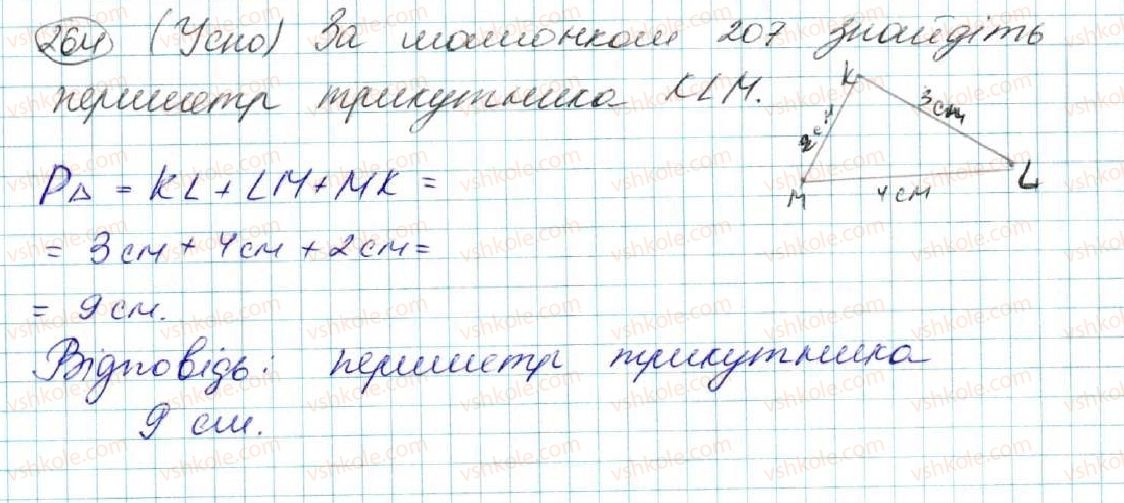 264 (Усно) За малюнком 207 знайдіть
периметр трикутника KLM.
K
3 см
2 см
M
4 см
L
P△ = KL + LM + MK =
= 3 см + 4 см + 2 см =
= 9 см.
Відповідь: периметр трикутника
9 см.
vshkole.com